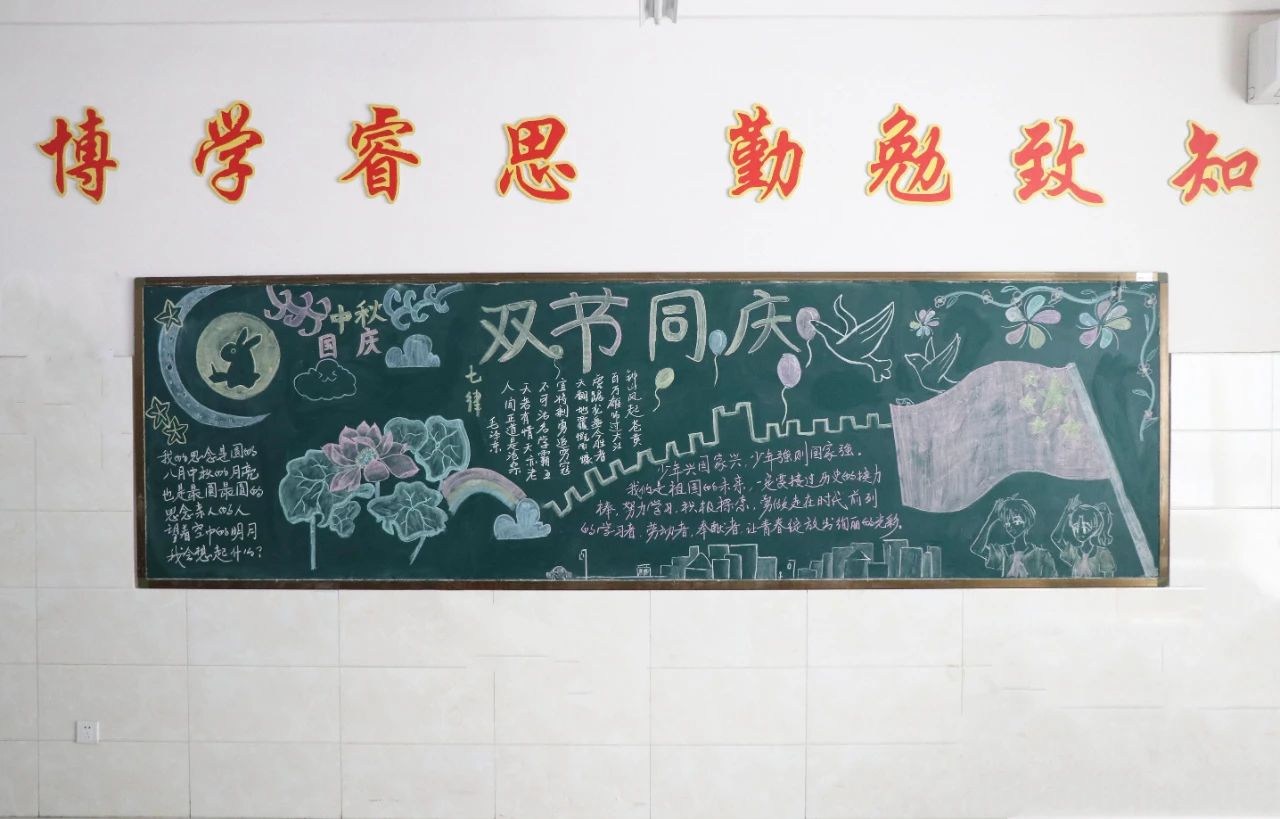 博学睿思 勤勉致知
中秋
国庆
双节同庆
我的思念是圆的
八月中秋的月亮
也是最圆最圆的
思念亲人的人
望着空中的明月
我会想起什么?
七律
钟山风起苍黄
百万雄师过大江
虎踞龙盘今胜
天翻地覆慨而慷
宜将剩勇追穷寇
不可沽名学霸王
天若有情天亦老
人间正道是沧桑
毛泽东
少年兴国家兴,少年强则国家强。
我们是祖国的未来,一定要接过历史的接力
棒,努力学习,积极探索,勇做走在时代前列
的学习者,劳动者,奉献者,让青春绽放出绚丽的光彩。